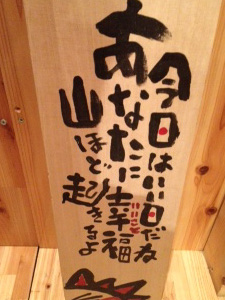 今日はいい日だね
あなたに幸福
いいこと
山ほど起きるよ